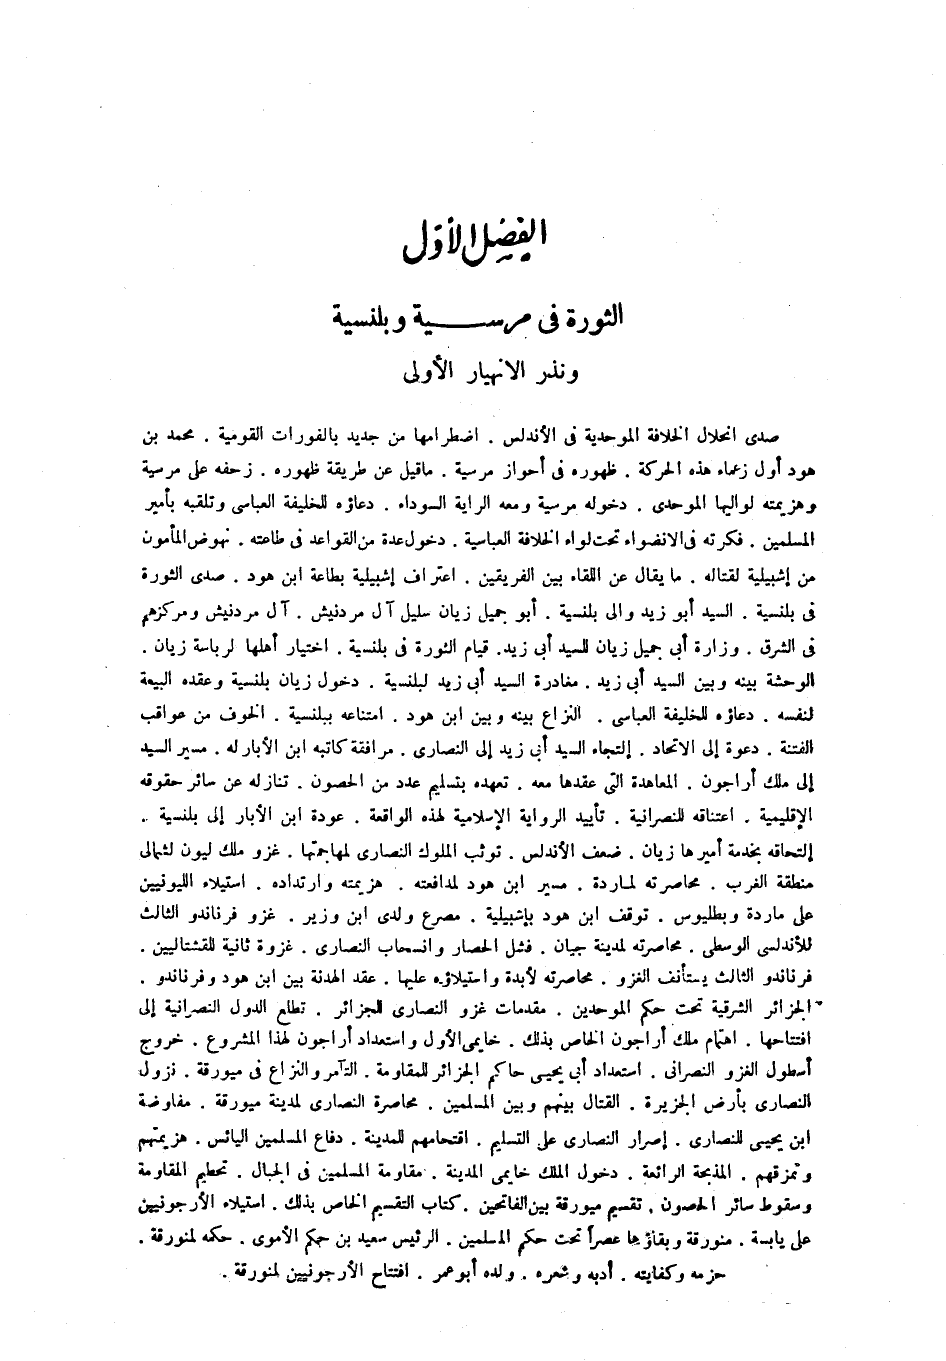 الفصل الأول
الثورة فى مرسية وبلنسية
ونذر الانهيار الأولى
صدى انحلال الخلافة الموحدية فى الأندلس . اضطرامها من جديد بالفورات القومية . محمد بن
هود أول زعماء هذه الحركة . ظهوره فى أحواز مرسية . ماقيل عن طريقة ظهوره . زحفه على مرسية
وهزيمته لواليها الموحدى . دخوله مرسية ومعه الراية السوداء . دعاؤه للخليفة العباسى وتلقبه بأمير
المسلمين . فكرته فى الانضواء تحت لواء الخلافة العباسية . دخول عدة من القواعد فى طاعته . نهوض المأمون
من إشبيلية لقتاله . ما يقال عن اللقاء بين الفريقين . اعتراف إشبيلية بطاعة ابن هود . صدى الثورة
فى بلنسية . السيد أبو زيد والى بلنسية . أبو جميل زيان سليل آل مردنيش . آل مردنيش ومركزهم
فى الشرق . وزارة أبى جميل زيان للسيد أبى زيد. قيام الثورة فى بلنسية . اختيار أهلها لرياسة زيان .
الوحشة بينه وبين السيد أبى زيد . مغادرة السيد أبى زيد لبلنسية . دخول زيان بلنسية وعقده البيعة
لنفسه . دعاؤه للخليفة العباسى . النزاع بينه وبين ابن هود . امتناعه ببلنسية . الخوف من عواقب
الفتنة . دعوة إلى الاتحاد . إلتجاء السيد أبى زيد إلى النصارى . مرافقة كاتبه ابن الأبار له . مسير السيد
إلى ملك أراجون . المعاهدة التى عقدها معه . تعهده بتسليم عدد من الحصون . تنازله عن سائر حقوقه
الإقليمية . اعتناقه للنصرانية . تأييد الرواية الإسلامية لهذه الواقعة . عودة ابن الأبار إلى بلنسية .
إلتحاقه بخدمة أميرها زيان . ضعف الأندلس . توثب الملوك النصارى لمهاجمتها . غزو ملك ليون لشمالى
منطقة الغرب . محاصرته لماردة . مسير ابن هود لمدافعته . هزيمته وارتداده . استيلاء الليونيين
على ماردة وبطليوس . توقف ابن هود بإشبيلية . مصرع ولدى ابن وزير . غزو فرناندو الثالث
للأندلسى الوسطى . محاصرته لمدينة جيان . فشل الحصار وانسحاب النصارى . غزوة ثانية للقشتاليين .
فرناندو الثالث يستأنف الغزو . محاصرته لأبدة واستيلاؤه عليها . عقد الهدنة بين ابن هود وفرناندو .
الجزائر الشرقية تحت حكم الموحدين . مقدمات غزو النصارى للجزائر . تطلع الدول النصرانية إلى
افتتاحها . اهتمام ملك أراجون الخاص بذلك . خايمى الأول واستعداد أراجون لهذا المشروع . خروج
أسطول الغزو النصرانى . استعداد أبى يحيى حاكم الجزائر للمقاومة . التآمر والنزاع فى ميورقة . نزول
النصارى بأرض الجزيرة . القتال بينهم وبين المسلمين . محاصرة النصارى لمدينة ميورقة . مفاوضة
ابن يحيى للنصارى . إصرار النصارى على التسليم . اقتحامهم للمدينة . دفاع المسلمين اليائس . هزيمتهم
وتمزقهم . المذبحة الرائعة . دخول الملك خايمى المدينة . مقاومة المسلمين فى الجبال . تحطيم المقاومة
وسقوط سائر الحصون . تقسيم ميورقة بين الفاتحين . كتاب التقسيم الخاص بذلك . استيلاء الأرجونيين
على يابسة . منورقة وبقاؤها عصراً تحت حكم المسلمين . الرئيس سعيد بن حكم الأموى . حكمه لمنورقة .
حزمه وكفايته . أدبه وشعره . ولده أبو عمر . افتتاح الأرجونيين لمنورقة .